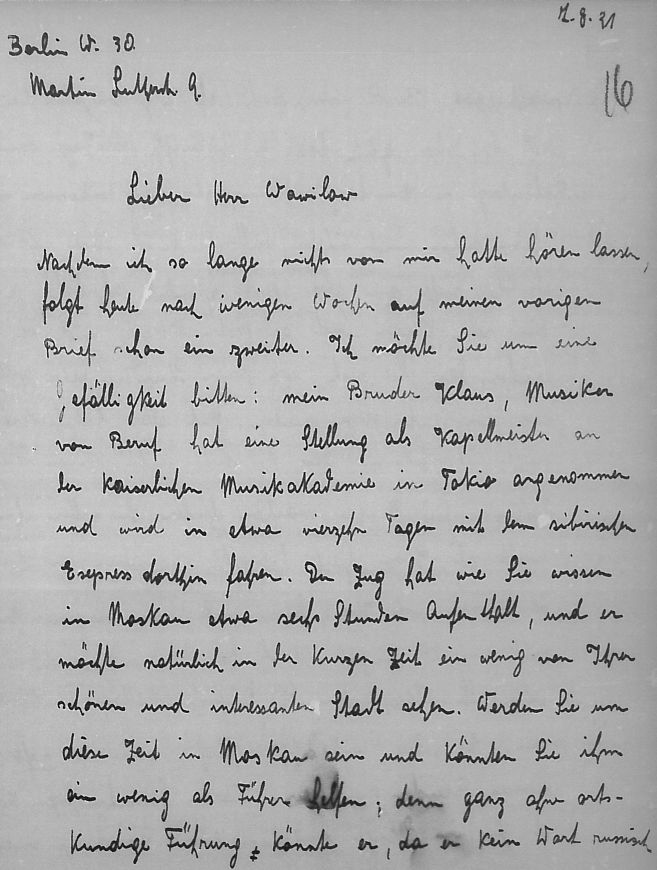 7.8.31
Berlin W. 30.
Martin Lutherstr. 9.
16
Lieber Herr Wawilow
Nachdem ich so lange nichts von mir hatte hören lassen,
folgt heute nach wenigen Wochen auf meinen vorigen
Brief schon ein zweiter. Ich möchte Sie um eine
Gefälligkeit bitten: mein Bruder Klaus, Musiker
von Beruf hat eine Stellung als Kapellmeister an
der Kaiserlichen Musikakademie in Tokio angenommen
und wird in etwa vierzehn Tagen mit dem sibirischen
Express dorthin fahren. Der Zug hat wie Sie wissen
in Moskau etwa sechs Stunden Aufenthalt, und er
möchte natürlich in der kurzen Zeit ein wenig von Ihrer
schönen und interessanten Stadt sehen. Werden Sie um
diese Zeit in Moskau sein und könnten Sie ihm
ein wenig als Führer helfen; denn ganz ohne orts-
kundige Führung könnte er, da er kein Wort russisch